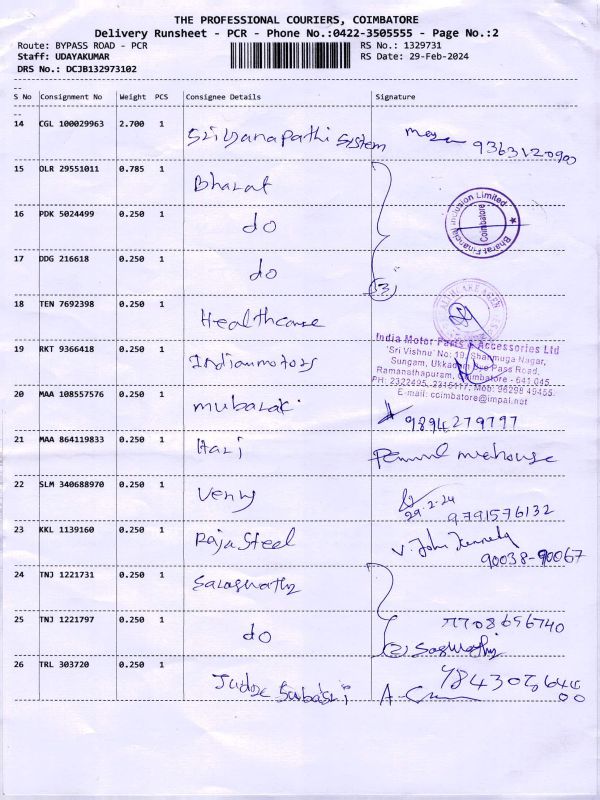 THE PROFESSIONAL COURIERS, COIMBATORE
Delivery Runsheet - PCR - Phone No.:0422-3505555 - Page No.:2
Route: BYPASS ROAD - PCR
Staff: UDAYAKUMAR
DRS No.: DCJB132973102
RS No.: 1329731
RS Date: 29-Feb-2024
S No Consignment No Weight PCS Consignee Details Signature
14 CGL 100029963 2.700 1 System
9363120900
15 DLR 29551011 0.785 1 Bharat
16 PDK 5024499 0.250 1 do
Bharat Financial Inclusion Limited
Coimbatore
17 DDG 216618 0.250 1 do
(3)
18 TEN 7692398 0.250 1 Healthcare
19 RKT 9366418 0.250 1 Indianmotors
India Motor Parts & Accessories Ltd
'Sri Vishnu' No: 19, Shanmuga Nagar,
Sungam, Ukkadam Bye Pass Road,
Ramanathapuram, Coimbatore - 641 045.
PH: 2322495, Mob: 98298 49455
E-mail: coimbatore@impal.net
20 MAA 108557576 0.250 1 mubarak
9894279797
21 MAA 864119833 0.250 1 Hari
22 SLM 340688970 0.250 1 Venny
29.2.24
9791576132
23 KKL 1139160 0.250 1 Raja Steel V. John Kennedy
90038-90067
24 TNJ 1221731 0.250 1 Saraswathy
25 TNJ 1221797 0.250 1 do 7708656740
(2)
26 TRL 303720 0.250 1 Judge